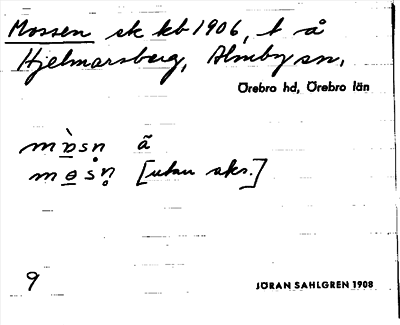 Mossen sk kb 1906, t å
Hjelmarsberg, Almby sn,
Örebro hd, Örebro län
m ɒ̀ s n̥ ã
m ɵ s n̥ [utan aks.]
9
JÖRAN SAHLGREN 1908